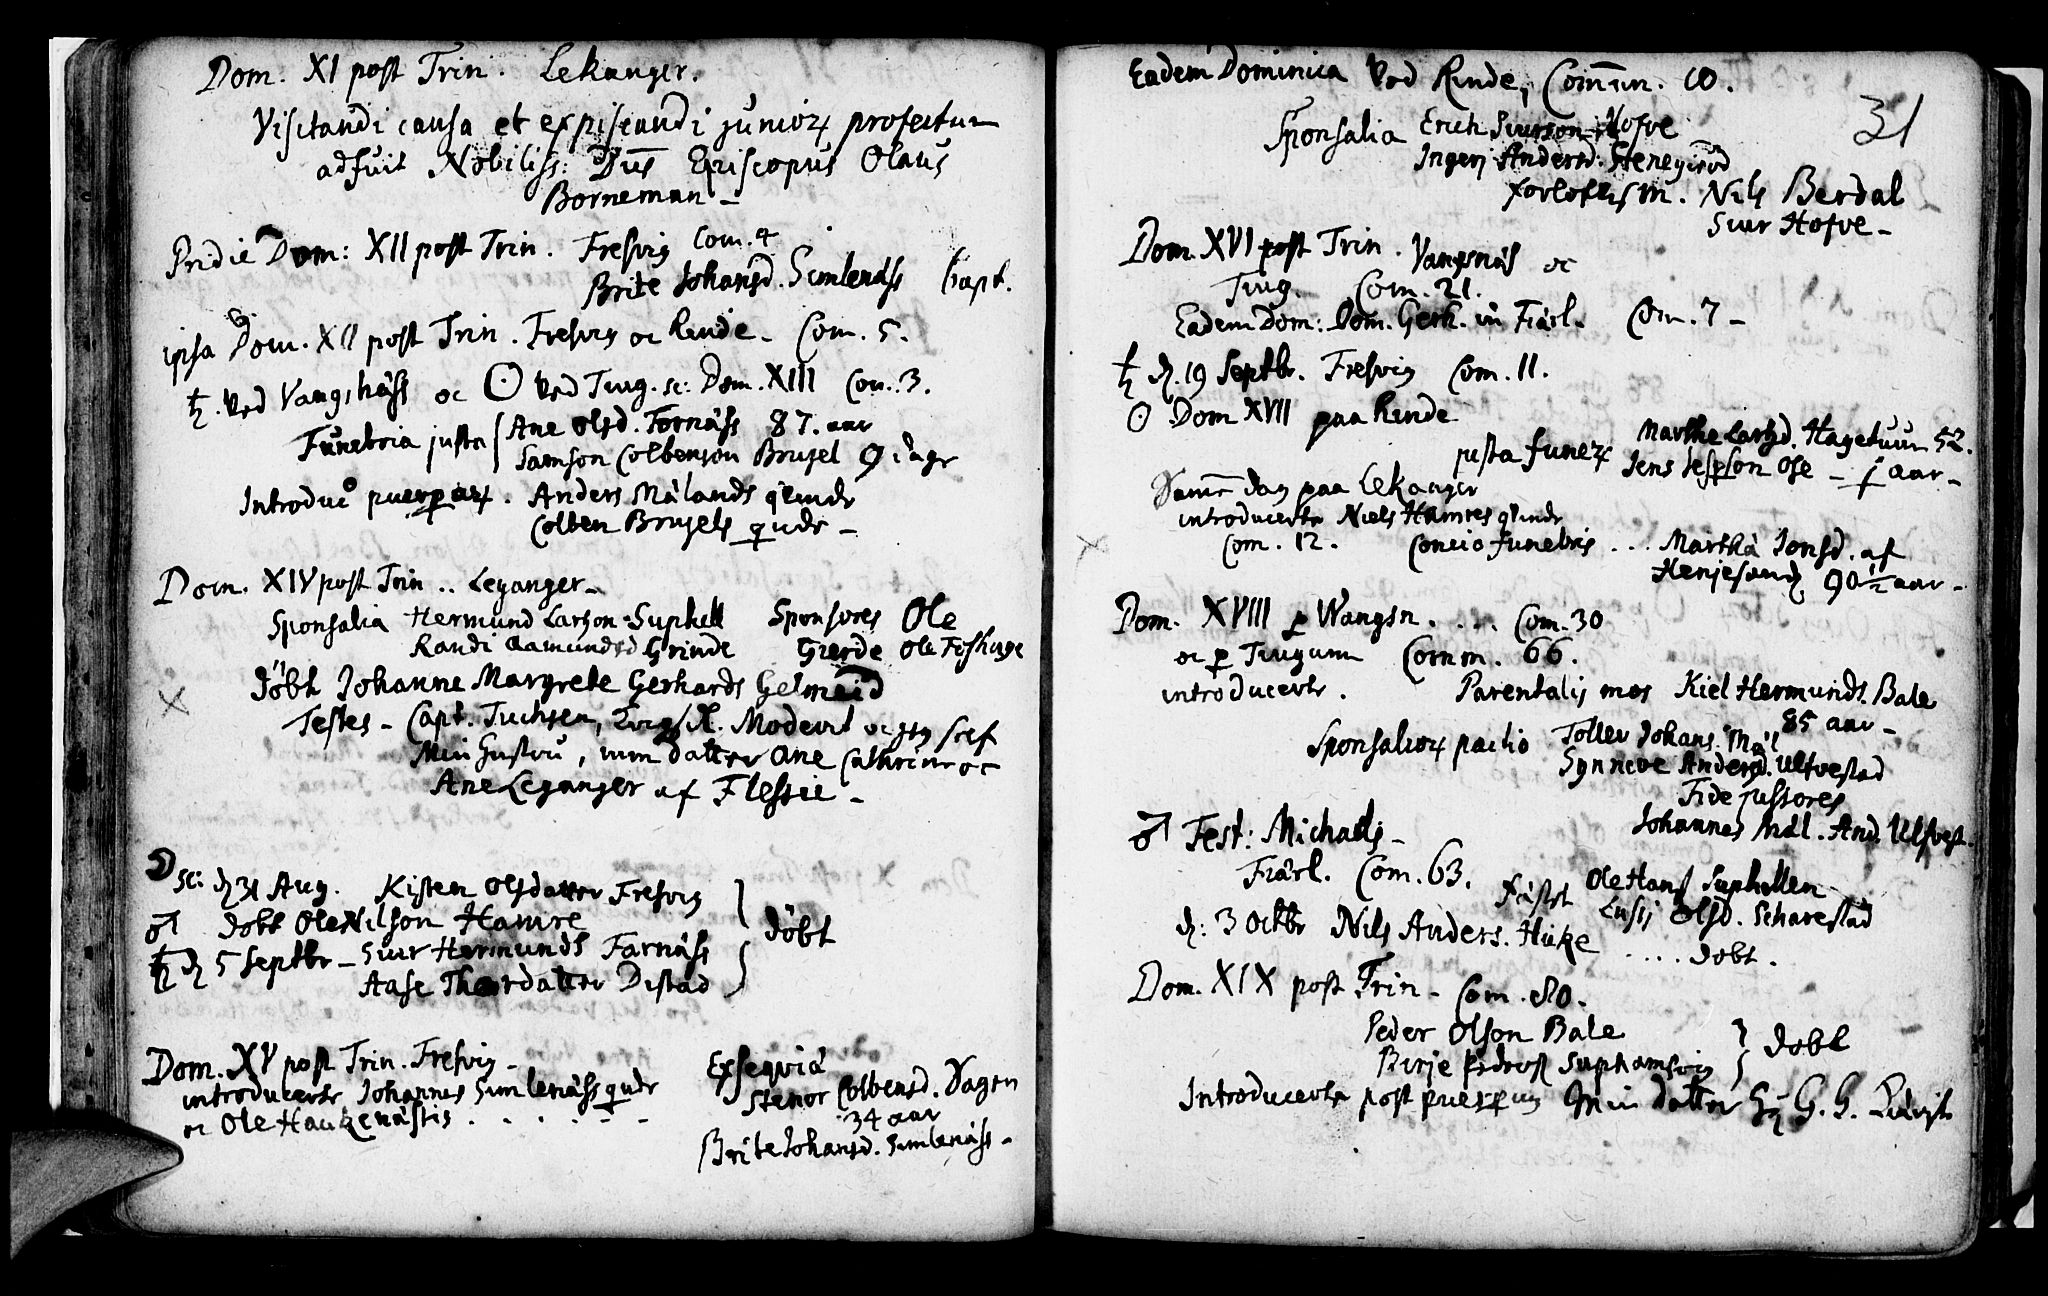 Dom. XI post Trin. Lekanger.
Visitandi causa et expiscandi junior profectum
adfuit Nobiliss: Dns Episcopus Olaus
Borneman –
Pridie Dom: XII post Trin. Fresvig Com. 4
Brite Johansd. Simlenäss bapt.
ipsa Dom. XII post Trin. Fresvig oc Rinde – Com. 5.
♄. Ved Vangsnäss oc ☉ Ved Tiug. sc: Dom. XIII Com. 3.
Funebria justa Ane Olsd. Fornäss 87. aar
Samson Colbenson Brusel 9 dage
Introduc puerpar. Anders Målands qvinde
Colben Brusels qvinde –
Dom. XIV post Trin .. Leganger –
Sponsalia Hermund Larson Suphell Sponsores Ole
Randi Aamundsd Grinde Gierde Ole Foshuge
döbt Johanne Margrete Gerhards Gelmeid
Testes – Capt. Tuchsen, Modevit oc
Min Hustru, min datter Ane Cathrine oc
Ane Leganger af Flessie –
☽ sc: d 31 Aug. Kisten Olsdatter Fresvig
♂ döbt Ole Nilson Hamre döbt
♄ d 5 Septbr – Siur Hermunds Farnäss
Aase Thordatter Distad
Dom. XV post Trin. Fresvig – Exsequiä
introducerte Johannes Simlenäss qvinde Stenor Colbensd. Hagen
oc Ole Haukenästis . . . . . . 34 aar
Brite Johansd. Simlenäss –
Eadem Dominica Ved Rinde, Comun. 10.
31
Sponsalia Erich Siurson Hofve
Ingerj Andersd:
forloftism. Nils Berdal
Siur Hofve –
Dom. XVI post Trin. Vangsnäs oc
Tiug. Com. 21.
Eadem Dom: Dom. Gerh. in Fiärl. Com. 7 –
♄ d. 19 Septbr. Fresvig Com. 11.
☉ Dom XVII paa Rinde
justa funer Marthe Larsd. Hagetuun 52.
Jens Jespson Ose – ½ aar –
Samme dag paa Lekanger
introducerte Niels Hamres qvinde
Com. 12. Concio funebris ... Martha Jonsd. af
Henjesand 90½ aar –
Dom. XVIII p Wangsn. ... Com. 30
oc p Tiugum Comm. 66.
introducerte. Parentalis mos Kiel Hermunds. Bale
85 aar –
Sponsalior pactio Toller Johans. Mål
Synneve Andersd. Ulvestad
Fide jussores
Johannes Mål. And. Ulfvest.
♂ Fest: Michaelis –
Fiärl. Com. 63. fästet Ole Hans Suphellen
Lusij Olsd. Scharestad
d: 3 Octbr Nils Anders. Hicke .... döbt.
Dom. XIX post Trin – Com. 80.
Peder Olson Bale
Birje Pedersd Suphamsvig döbt
Introducerte post puerperium Min datter G. G.